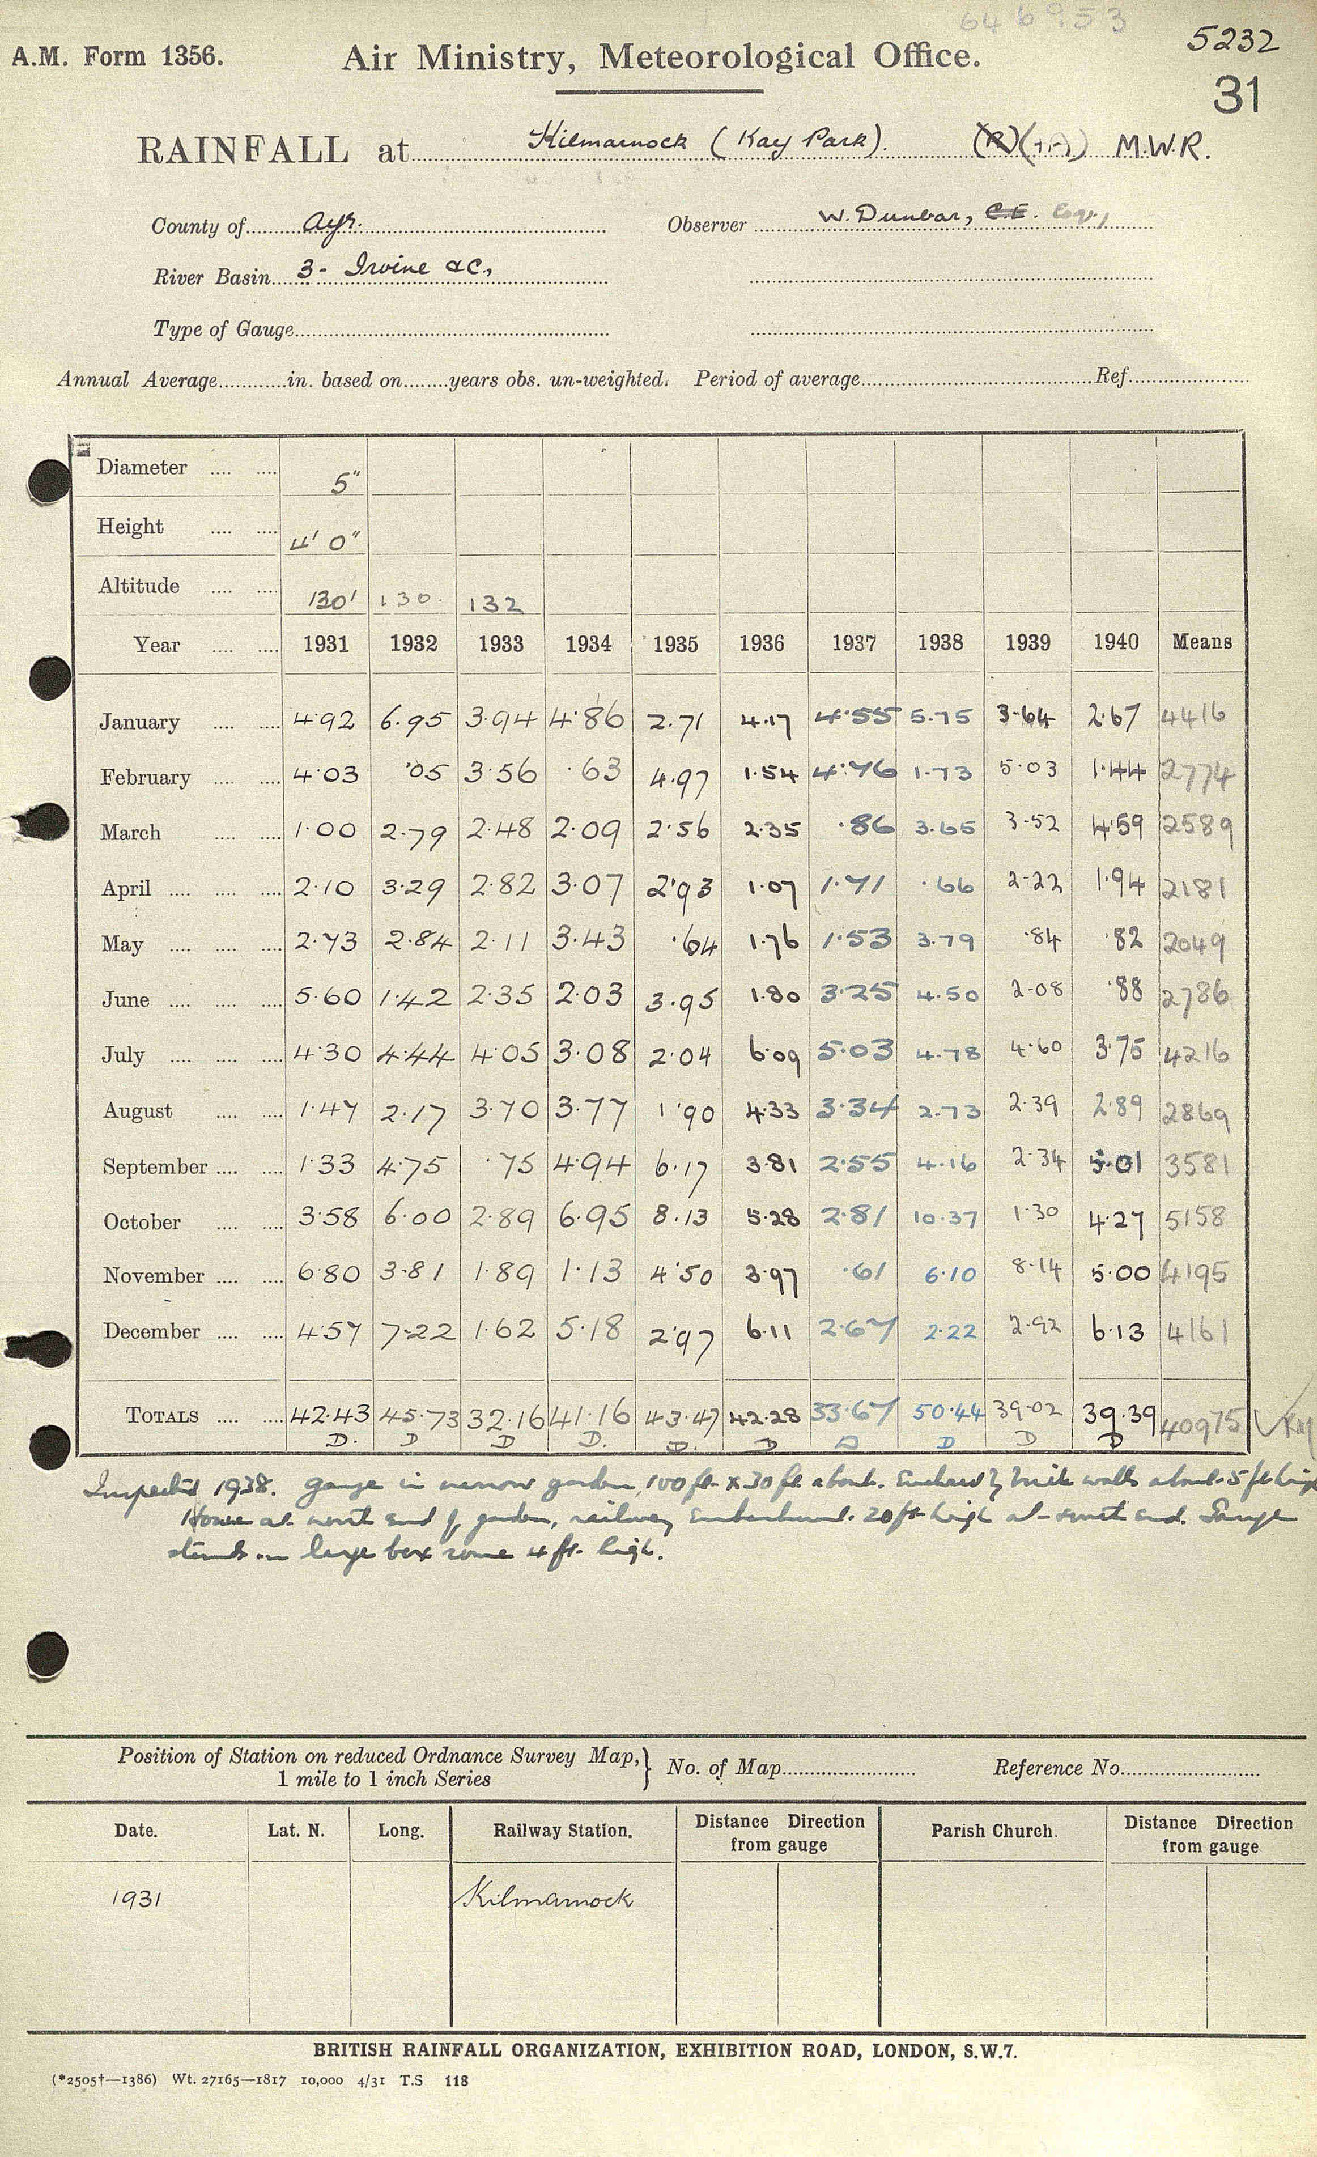 646953
5232
A.M. Form 1356. Air Ministry, Meteorological Office.
31
RAINFALL at Kilmarnock (Kay Park). (R) (+A) M.W.R.
County of Ayr. Observer W. Dunbar, C.E. Esq.,
River Basin 3 - Irvine &c.,
Type of Gauge
Annual Average in. based on years obs. un-weighted. Period of average Ref.
Diameter 5"
Height 4' 0"
Altitude 130' 130 132
Year 1931 1932 1933 1934 1935 1936 1937 1938 1939 1940 Means
January 4.92 6.95 3.94 4.86 2.71 4.17 4.55 5.75 3.64 2.67 4416
February 4.03 .05 3.56 .63 4.97 1.54 4.76 1.73 5.03 1.44 2774
March 1.00 2.79 2.48 2.09 2.56 2.35 .86 3.65 3.52 4.59 2589
April 2.10 3.29 2.82 3.07 2.93 1.07 1.71 .66 2.22 1.94 2181
May 2.73 2.84 2.11 3.43 .64 1.76 1.53 3.79 .84 .82 2049
June 5.60 1.42 2.35 2.03 3.95 1.80 3.25 4.50 2.08 .88 2786
July 4.30 4.44 4.05 3.08 2.04 6.09 5.03 4.78 4.60 3.75 4216
August 1.47 2.17 3.70 3.77 1.90 4.33 3.34 2.73 2.39 2.89 2869
September 1.33 4.75 .75 4.94 6.17 3.81 2.55 4.16 2.34 5.01 3581
October 3.58 6.00 2.89 6.95 8.13 5.28 2.81 10.37 1.30 4.27 5158
November 6.80 3.81 1.89 1.13 4.50 3.97 .61 6.10 8.14 5.00 4195
December 4.57 7.22 1.62 5.18 2.97 6.11 2.67 2.22 2.92 6.13 4161
TOTALS 42.43 45.73 32.16 41.16 43.47 42.28 33.67 50.44 39.02 39.39 40975
D. D D D. D. D D D D D
Inspected 1938. Gauge in narrow garden, 100 ft x 30 ft about. Enclosed by brick walls about 5 ft high
House at north end of garden, railway embankment 20 ft high at south end. Gauge
stands on large box some 4 ft. high.
Position of Station on reduced Ordnance Survey Map, } No. of Map Reference No.
1 mile to 1 inch Series
Date. Lat. N. Long. Railway Station. Distance Direction from gauge Parish Church. Distance Direction from gauge
1931 Kilmarnock
BRITISH RAINFALL ORGANIZATION, EXHIBITION ROAD, LONDON, S.W.7.
(*2505†—1386) Wt. 27165—1817 10,000 4/31 T.S 118